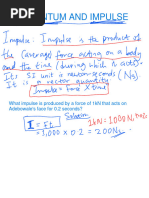 ENTUM AND IMPULSE
Impulse: Impulse is the product of
the (average) force acting on a body
and the time (during which it acts)
Its SI unit is newton-seconds (Ns)
It is a vector quantity
Impulse = Force X time
What impulse is produced by a force of 1kN that acts on
Adebowale's face for 0.2 seconds?
Solution
1kN = 1000N
I = Ft
= 1,000 x 0.2 = 200Ns